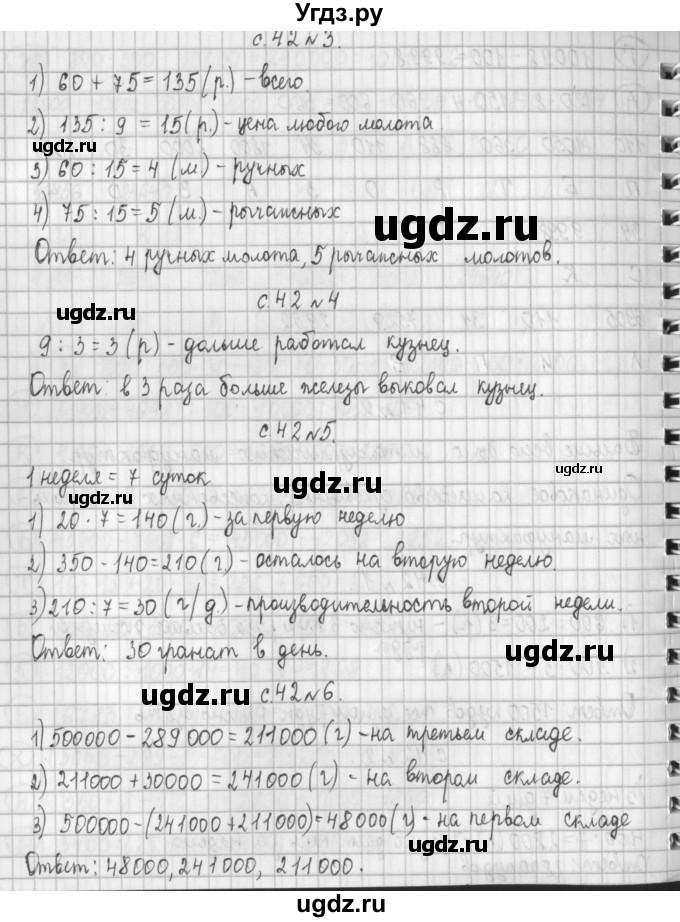 Угдз.ру
с.42 №3.
1) 60 + 75 = 135 (р.) - всего.
2) 135 : 9 = 15 (р.) - цена любого молота
ugdz.ru
3) 60 : 15 = 4 (м.) - ручных
4) 75 : 15 = 5 (м.) - рычажных
ugdz.ru
Ответ: 4 ручных молота, 5 рычажных молотов.
ugdz.ru
с.42 №4
9 : 3 = 3 (р) - дольше работал кузнец.
ugdz.ru
Ответ: в 3 раза больше железы выковал кузнец.
с.42 №5.
ugdz.ru
1 неделя = 7 суток
1) 20 · 7 = 140 (г.) - за первую неделю
ugdz.ru
2) 350 - 140 = 210 (г.) - осталось на вторую неделю.
3) 210 : 7 = 30 (г/д.) - производительность второй недели.
Ответ: 30 гранат в день.
ugdz.ru
ugdz.ru
с.42 №6.
1) 500000 - 289000 = 211000 (г) - на третьем складе.
2) 211000 + 30000 = 241000 (г) - на втором складе.
3) 500000 - (241000 + 211000) = 48000 (г) - на первом складе
ugdz.ru
Ответ: 48000, 241000, 211000.
ugdz.ru